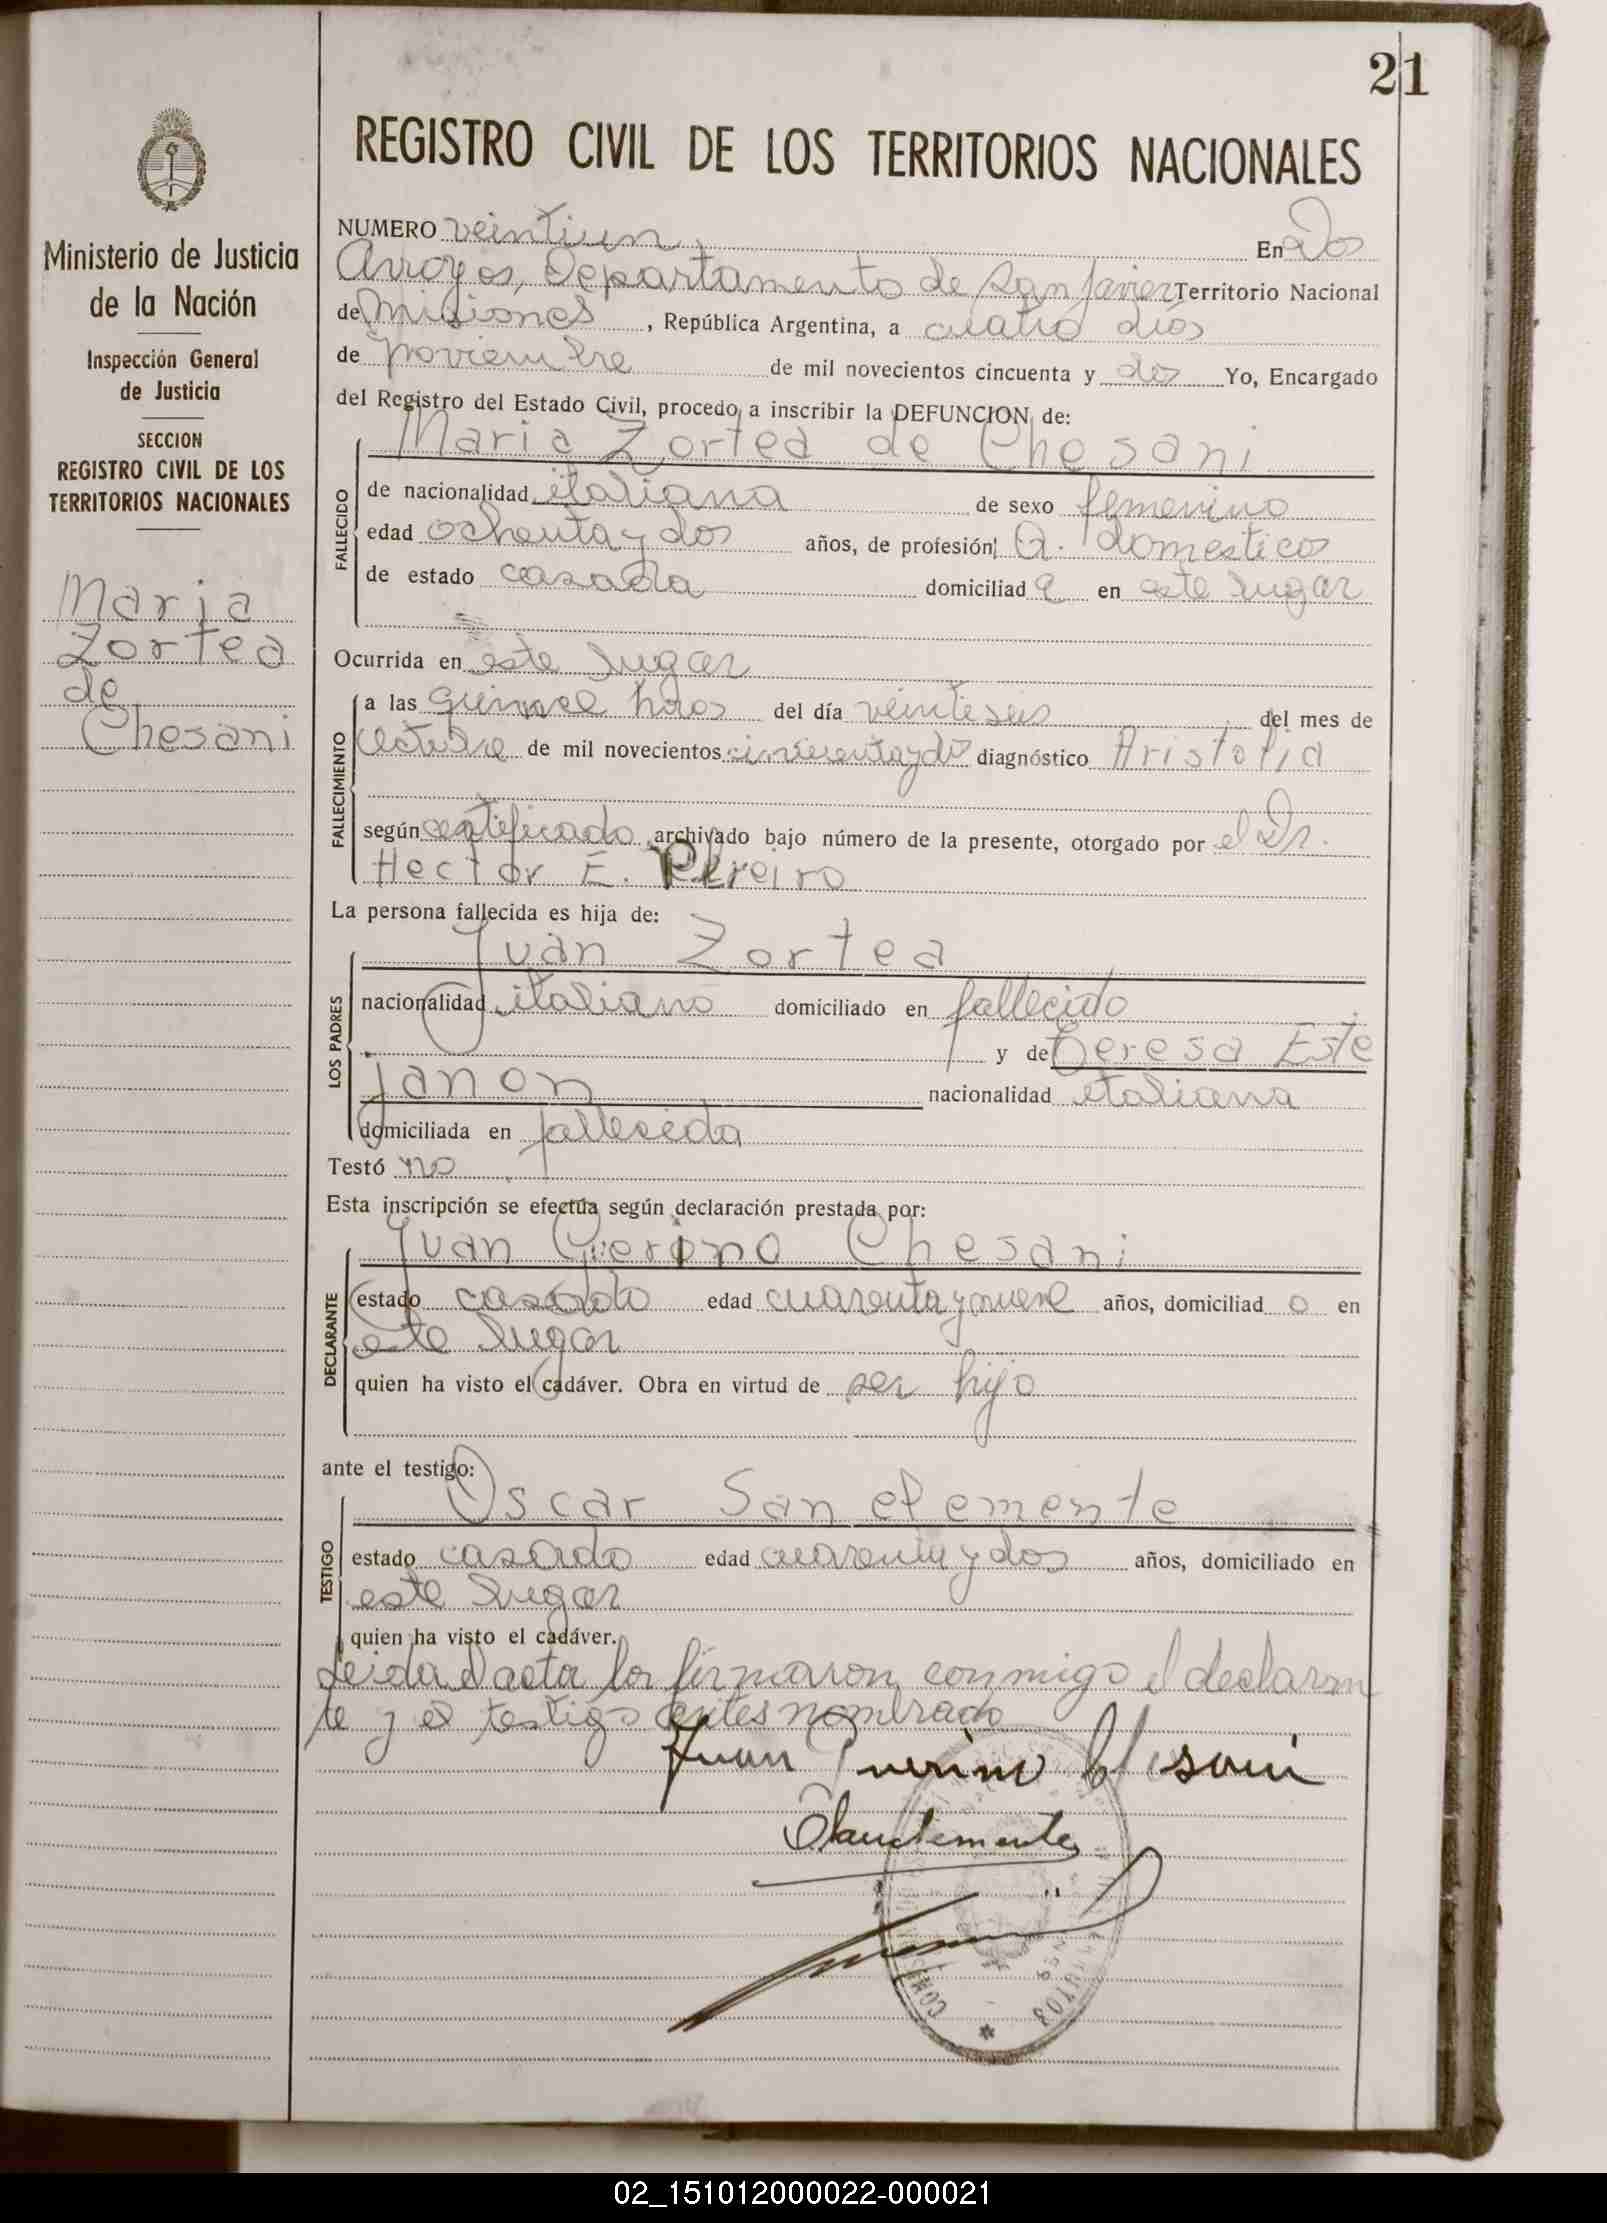 21
REGISTRO CIVIL DE LOS TERRITORIOS NACIONALES
Ministerio de Justicia
de la Nación
Inspección General
de Justicia
SECCION
REGISTRO CIVIL DE LOS
TERRITORIOS NACIONALES
Maria
Zortea
de
Chesani
NUMERO veintiun En Dos
Arroyos, Departamento de San Javier Territorio Nacional
de Misiones, República Argentina, a cuatro dias
de noviembre de mil novecientos cincuenta y dos Yo, Encargado
del Registro del Estado Civil, procedo a inscribir la DEFUNCION de:
Maria Zortea de Chesani
FALLECIDO
de nacionalidad italiana de sexo femenino
edad ochenta y dos años, de profesión Q. domesticos
de estado casada domiciliada en este lugar
Ocurrida en este lugar
FALLECIMIENTO
a las quince horas del día veinteseis del mes de
octubre de mil novecientos cincuenta y dos diagnóstico
según certificado archivado bajo número de la presente, otorgado por el Dr.
Hector E. Pereiro
La persona fallecida es hija de:
LOS PADRES
Juan Zortea
nacionalidad italiano domiciliado en fallecido
y de Teresa Este
janon nacionalidad italiana
domiciliada en fallecida
Testó no
Esta inscripción se efectúa según declaración prestada por:
DECLARANTE
Juan Guerino Chesani
estado casado edad cuarenta y nueve años, domiciliado en
este lugar
quien ha visto el cadáver. Obra en virtud de ser hijo
ante el testigo:
TESTIGO
Oscar San elemente
estado casado edad cuarenta y dos años, domiciliado en
este lugar
quien ha visto el cadáver.
Leida el acta la firmaron conmigo el declaran
te y el testigo antes nombrado
Juan Guerino Chesani
OSanclemente
02_151012000022-000021